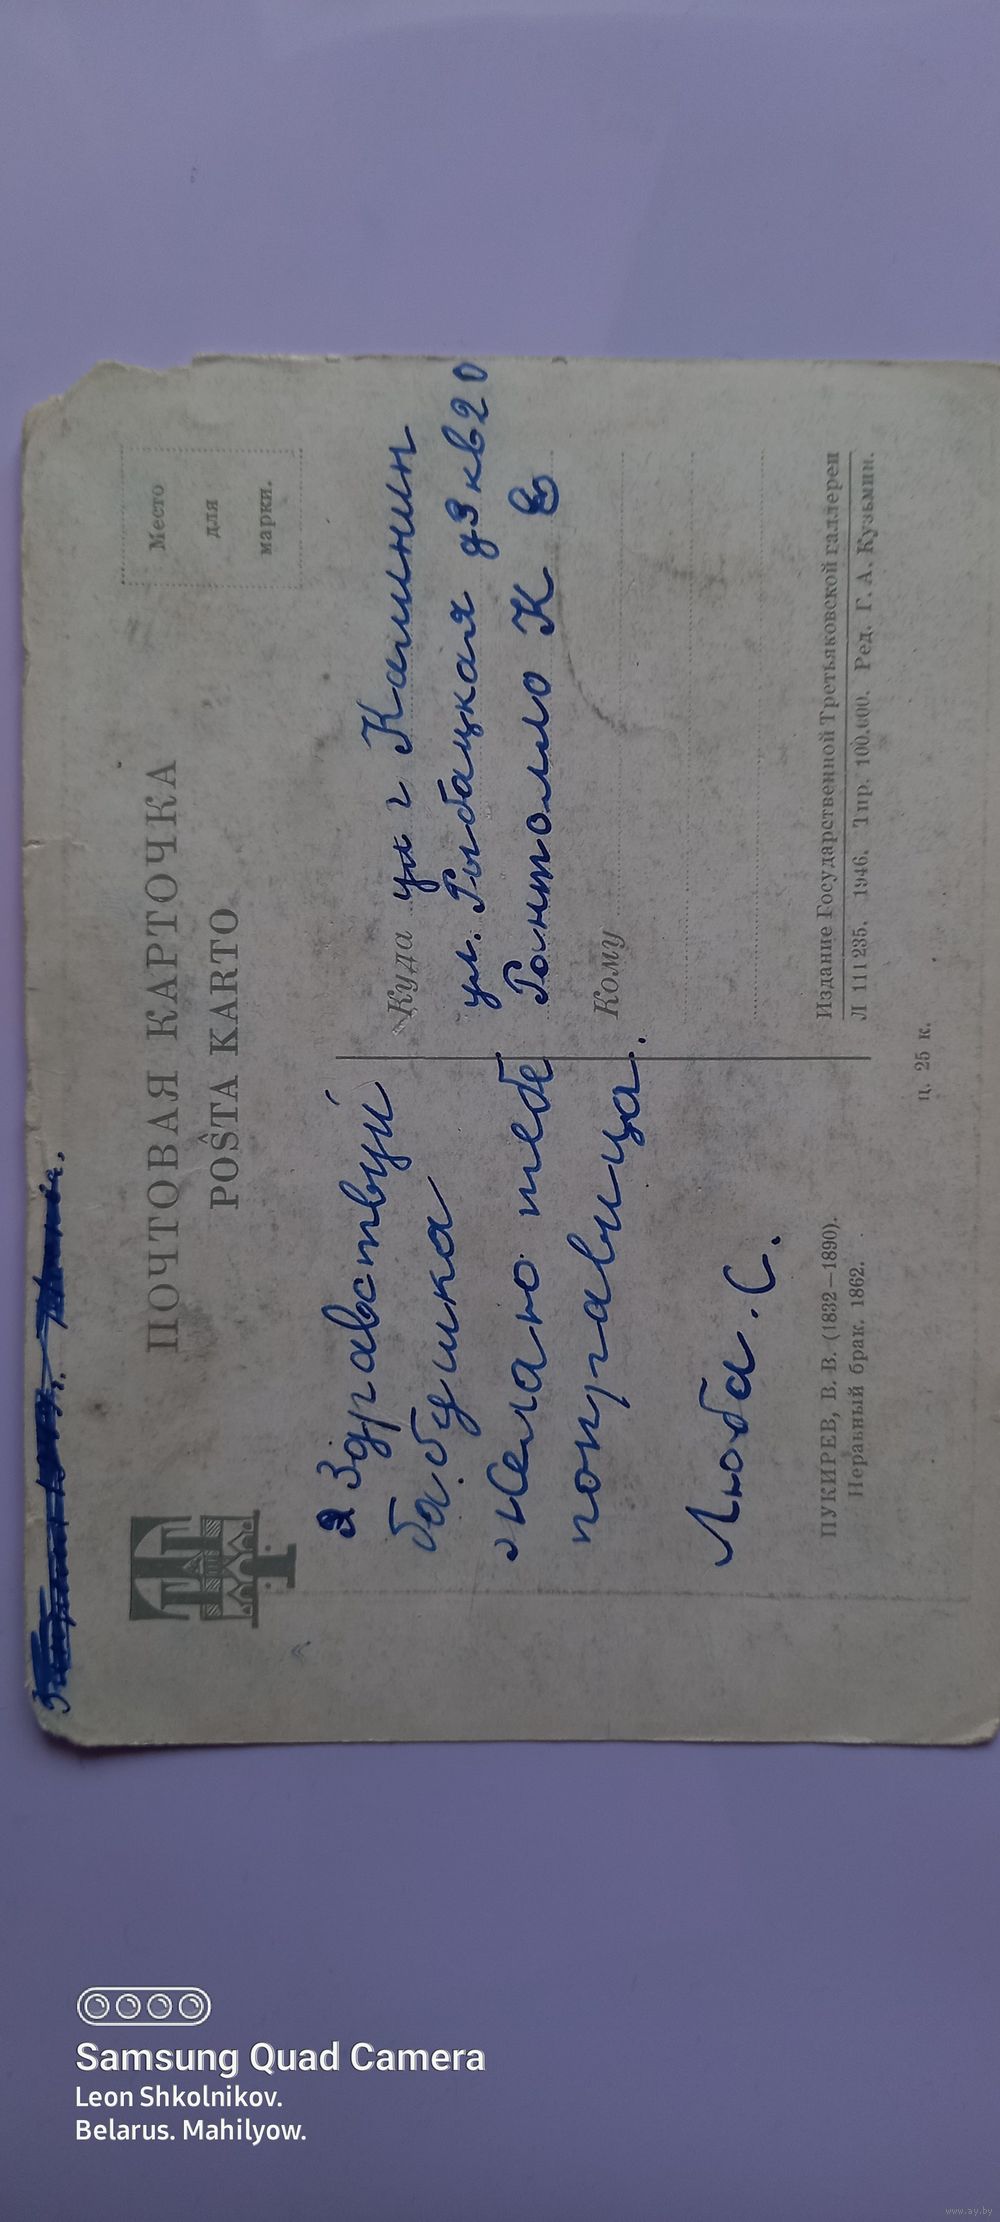 ПОЧТОВАЯ КАРТОЧКА
POŜTA KARTO
Место
для
марки.
Здравствуй
бабушка
желаю тебе
поправица.
Люба. С.
Куда ул г Калинин
ул. Рыбацкая д3 кв20
К Е
Кому
ПУКИРЕВ, В. В. (1832–1890).
Неравный брак. 1862.
Издание Государственной Третьяковской галлереи
Л 111235. 1946. Тир. 100.000. Ред. Г. А. Кузьмин.
ц. 25 к.
Samsung Quad Camera
Leon Shkolnikov.
Belarus. Mahilyow.
www.ay.by